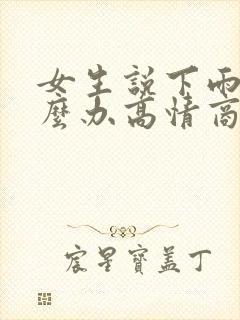 女生說下雨
麼办高情商
宸星寶盖丁